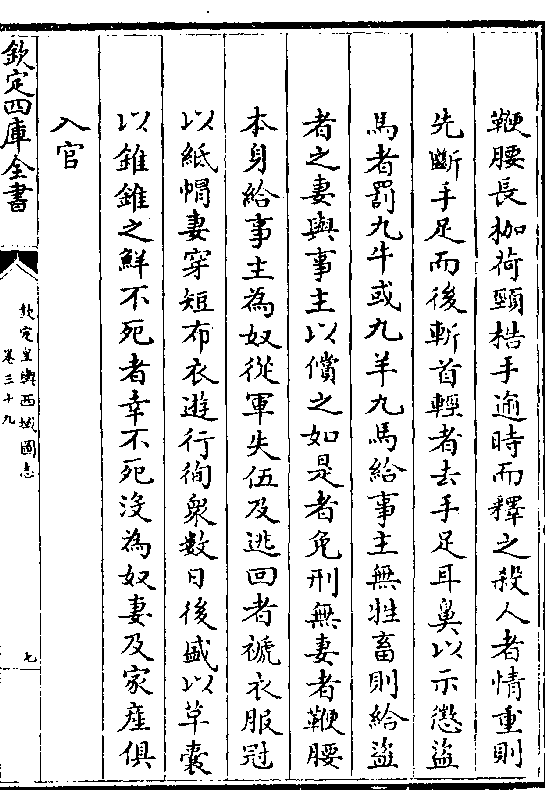 鞭腰長枷荷頸梏手逾時而釋之殺人者情重則
先斷手足而後斬首輕者去手足耳鼻以示懲盜
馬者罰九牛或九羊九馬給事主無牲畜則給盜
者之妻與事主以償之如是者免刑無妻者鞭腰
本身給事主為奴從軍失伍及逃回者褫衣服冠
以紙帽妻穿短布衣遊行徇衆數日後盛以草囊
以錐錐之鮮不死者幸不死没為奴妻及家産俱
入官
欽定四庫全書
欽定皇輿西域圖志
卷三十九
七